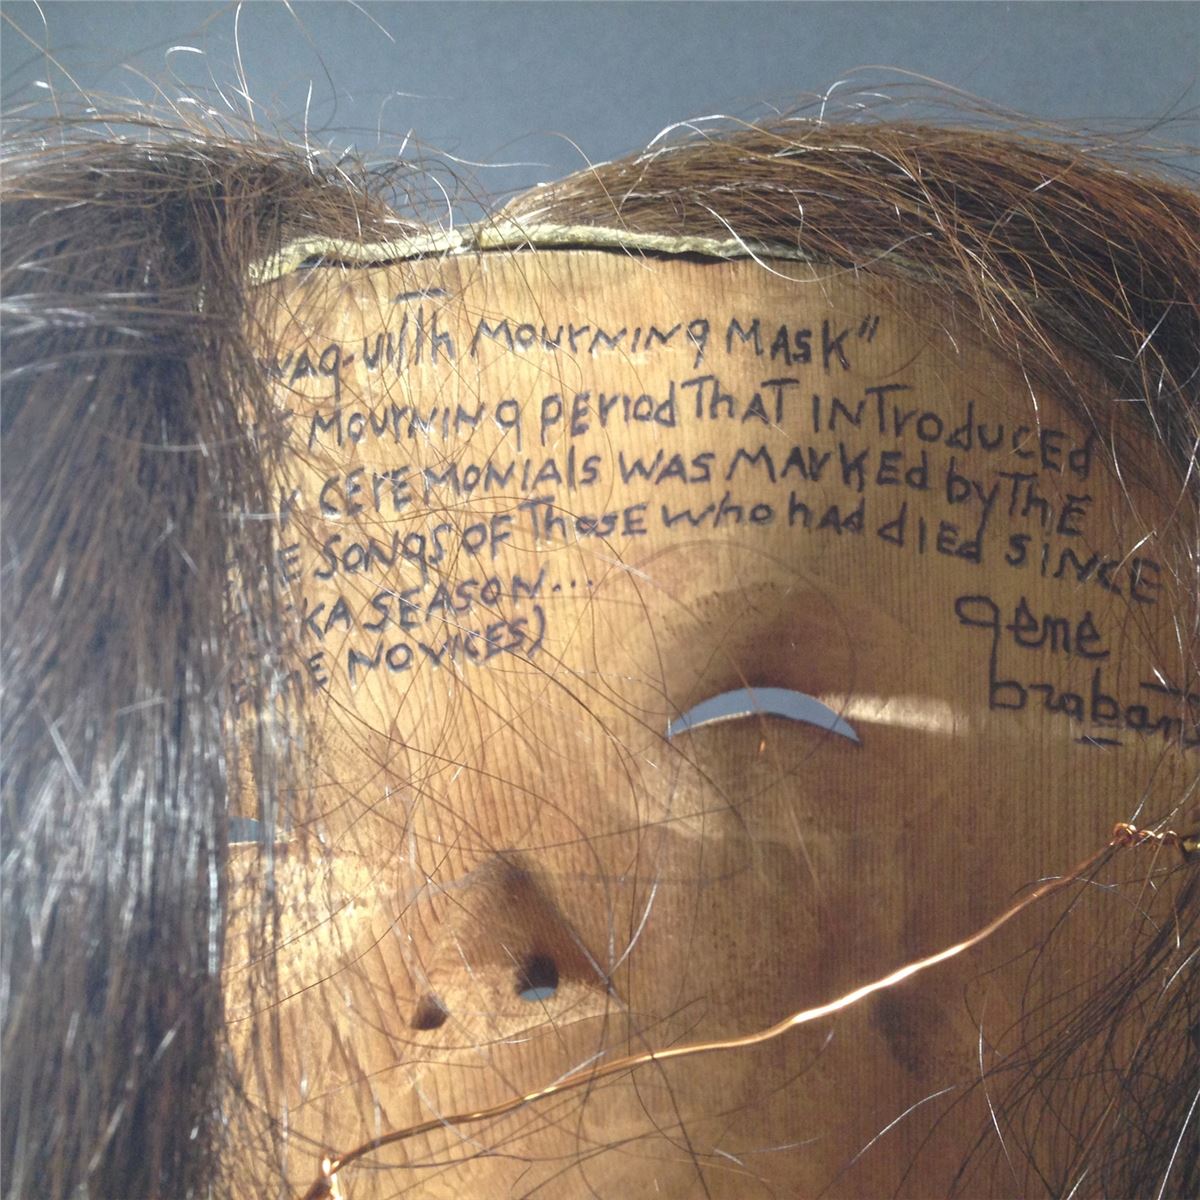 MOURNING MASK"
MOURNING PERIOD THAT INTRODUCED
CEREMONIALS WAS MARKED by THE
SONGS OF THOSE who had died SINCE
KA SEASON...
NOVICES)
gene
braban